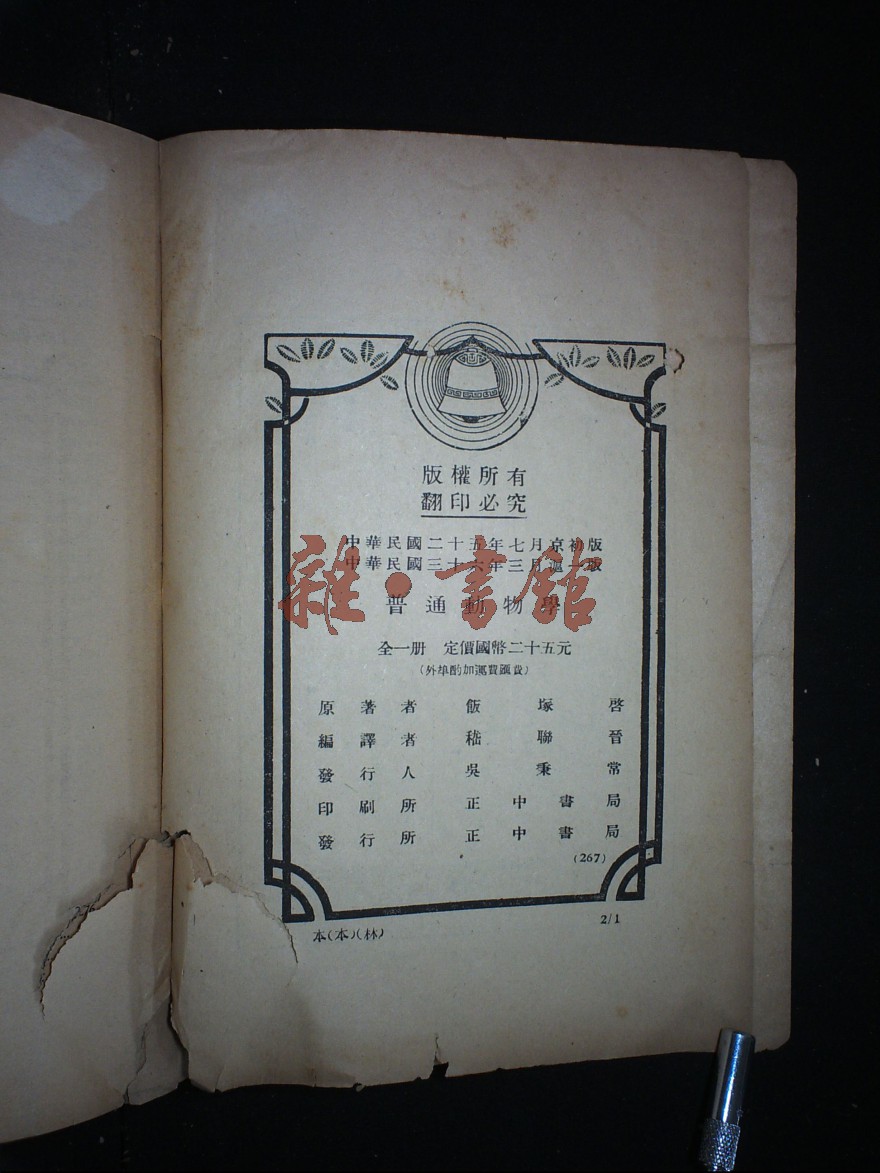 版權所有
翻印必究
中華民國二十五年七月京初版
中華民國三十六年三月滬一版
雜·書館
普通動物學
全一册 定價國幣二十五元
(外埠酌加運費匯費)
原著者 飯塚啓
編譯者 嵇聯晉
發行人 吳秉常
印刷所 正中書局
發行所 正中書局
(267)
本(本)(林) 2/1